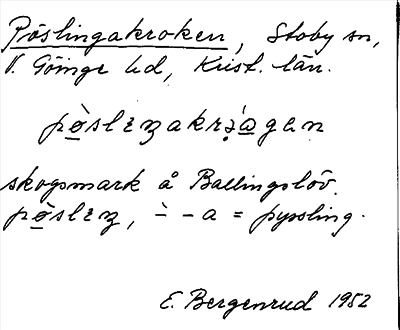 Pöslingakroken, Stoby sn,
V. Göinge hd, Krist. län.
pø̀slıŋakrə̣́ɑgen
skogsmark å Ballingslöv.
pø̀slıŋ, ⸌ – a = pyssling.
E. Bergenrud 1952